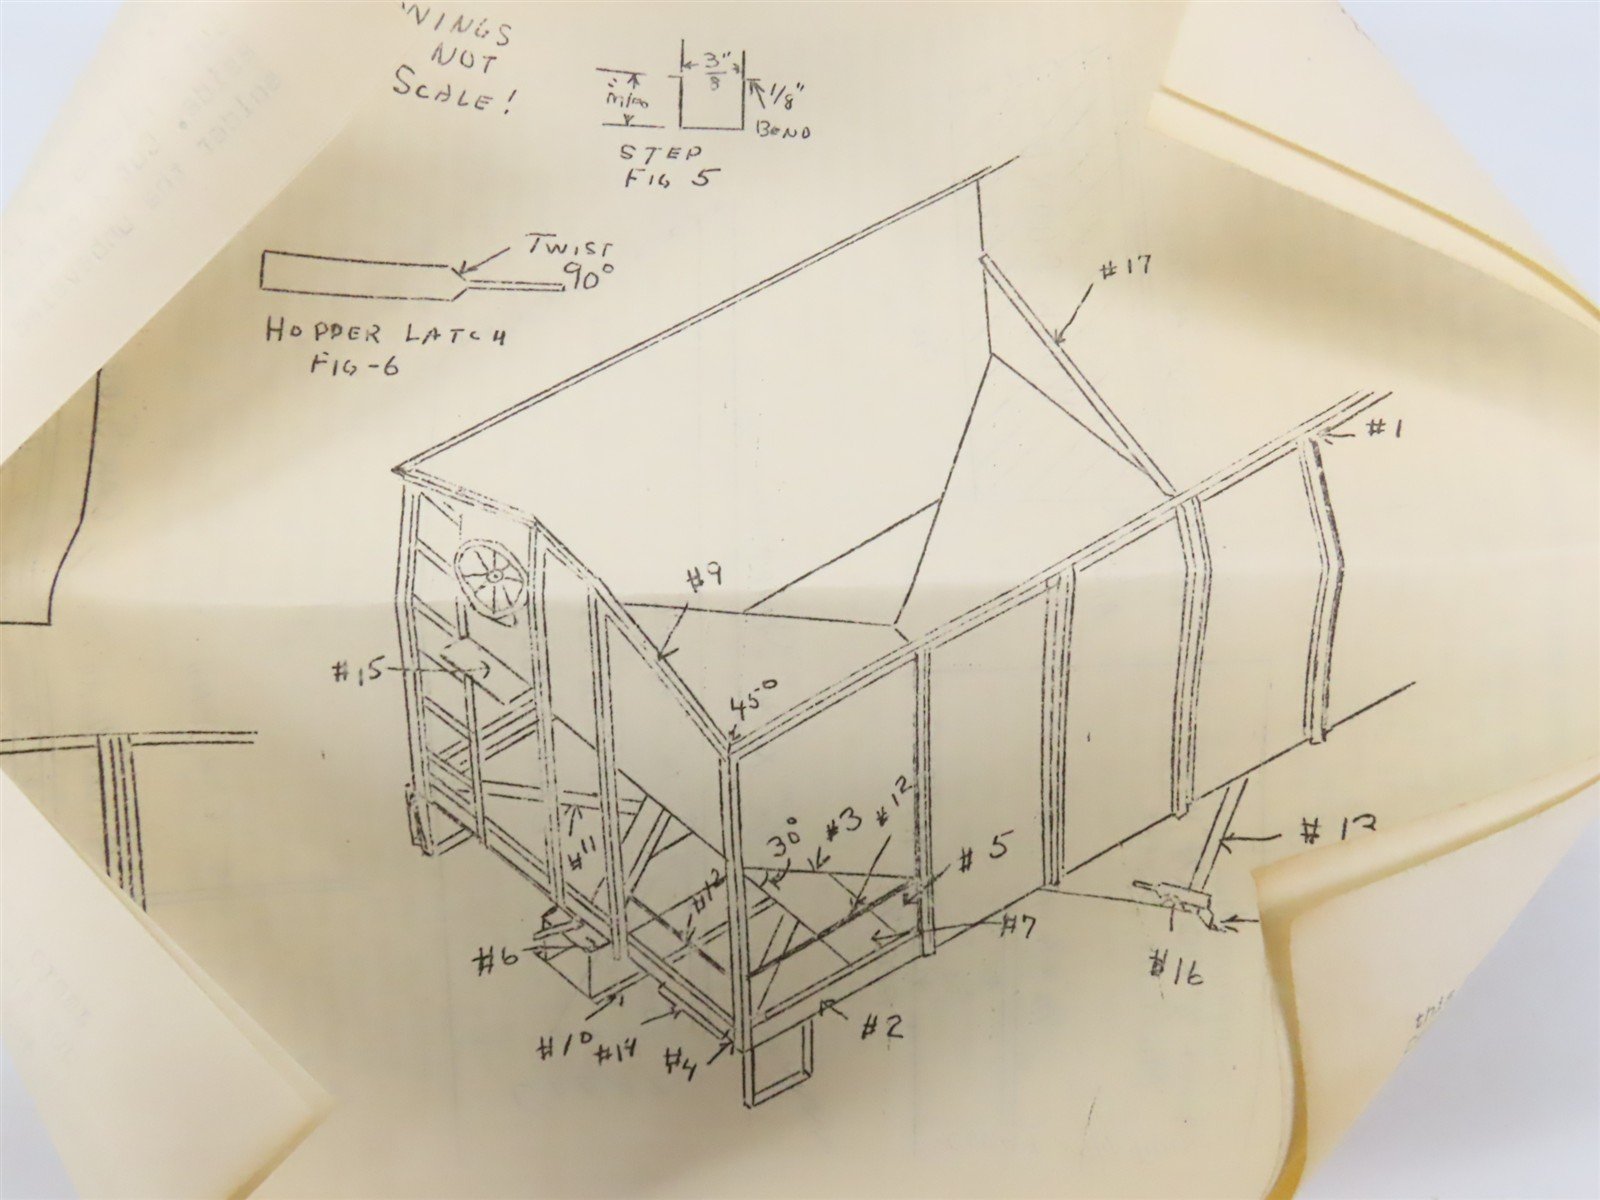 WINGS
NOT
SCALE!
3"
8
1/8"
BEND
STEP
FIG 5
TWIST
90°
HOPPER LATCH
FIG-6
#17
#1
#9
#15
45°
#11
30°
#3
#12
#5
#12
#6
#7
#13
#16
#10
#14
#4
#2
this